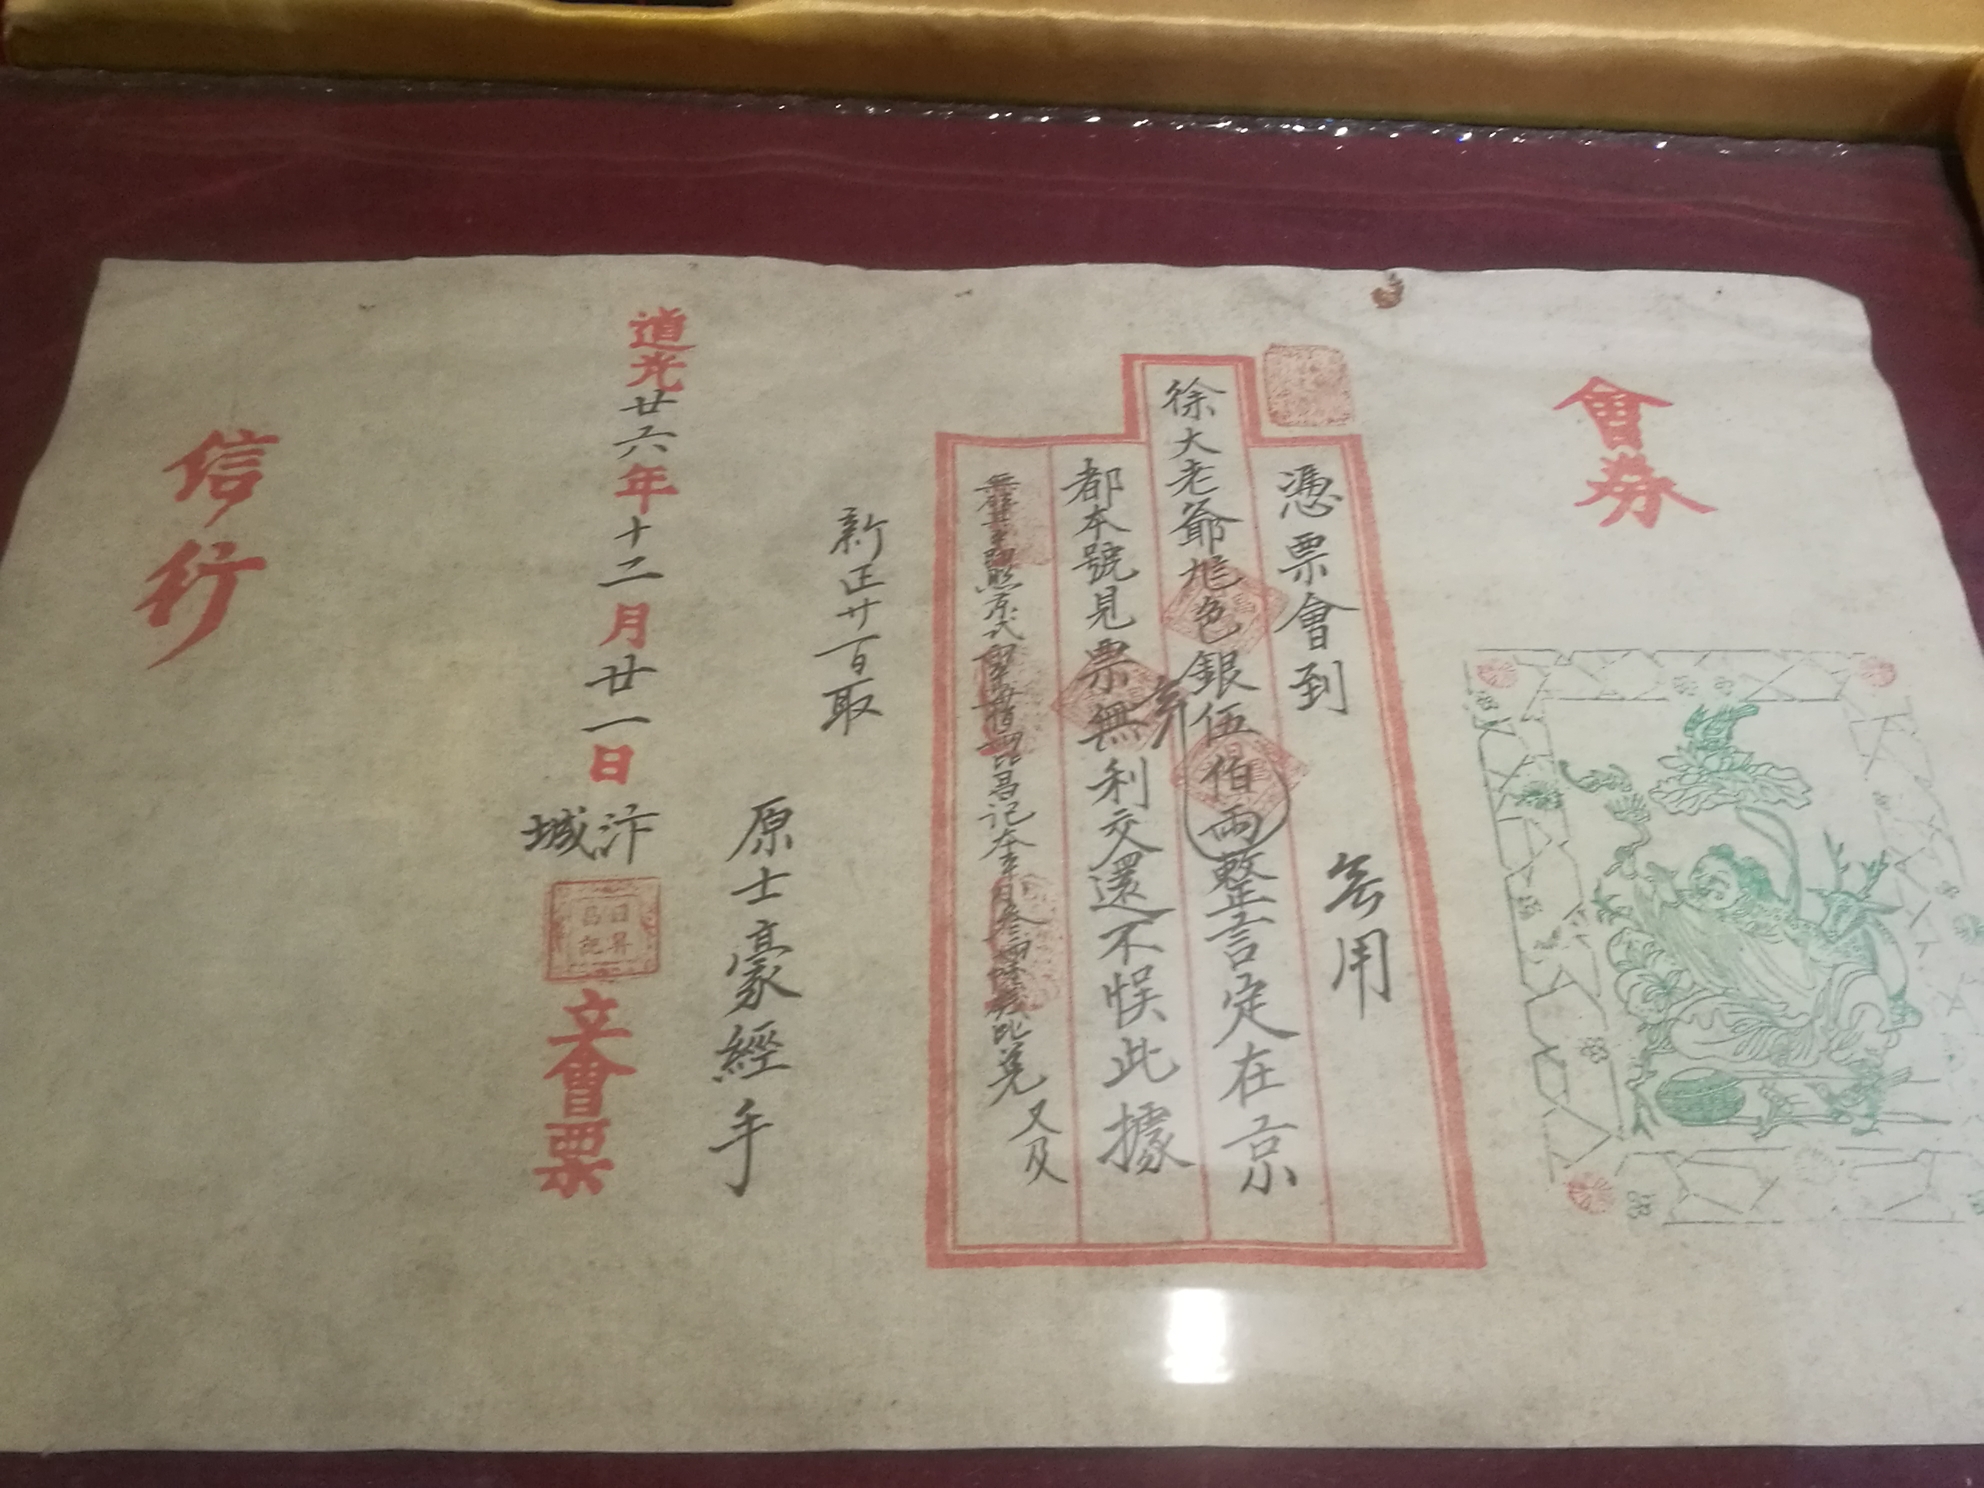 會券
憑票會到
無用
徐大老爺足色銀伍佰兩整言定在京
都本號見票無利交還不悮此據
又及
新正廿百取
原士豪經手
道光廿六年十二月廿一日
汴城
日昇昌記
立會票
信行